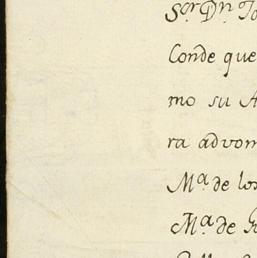 S.or D.n
Conde que
mo su
ra advom
M.a de los
M.a de